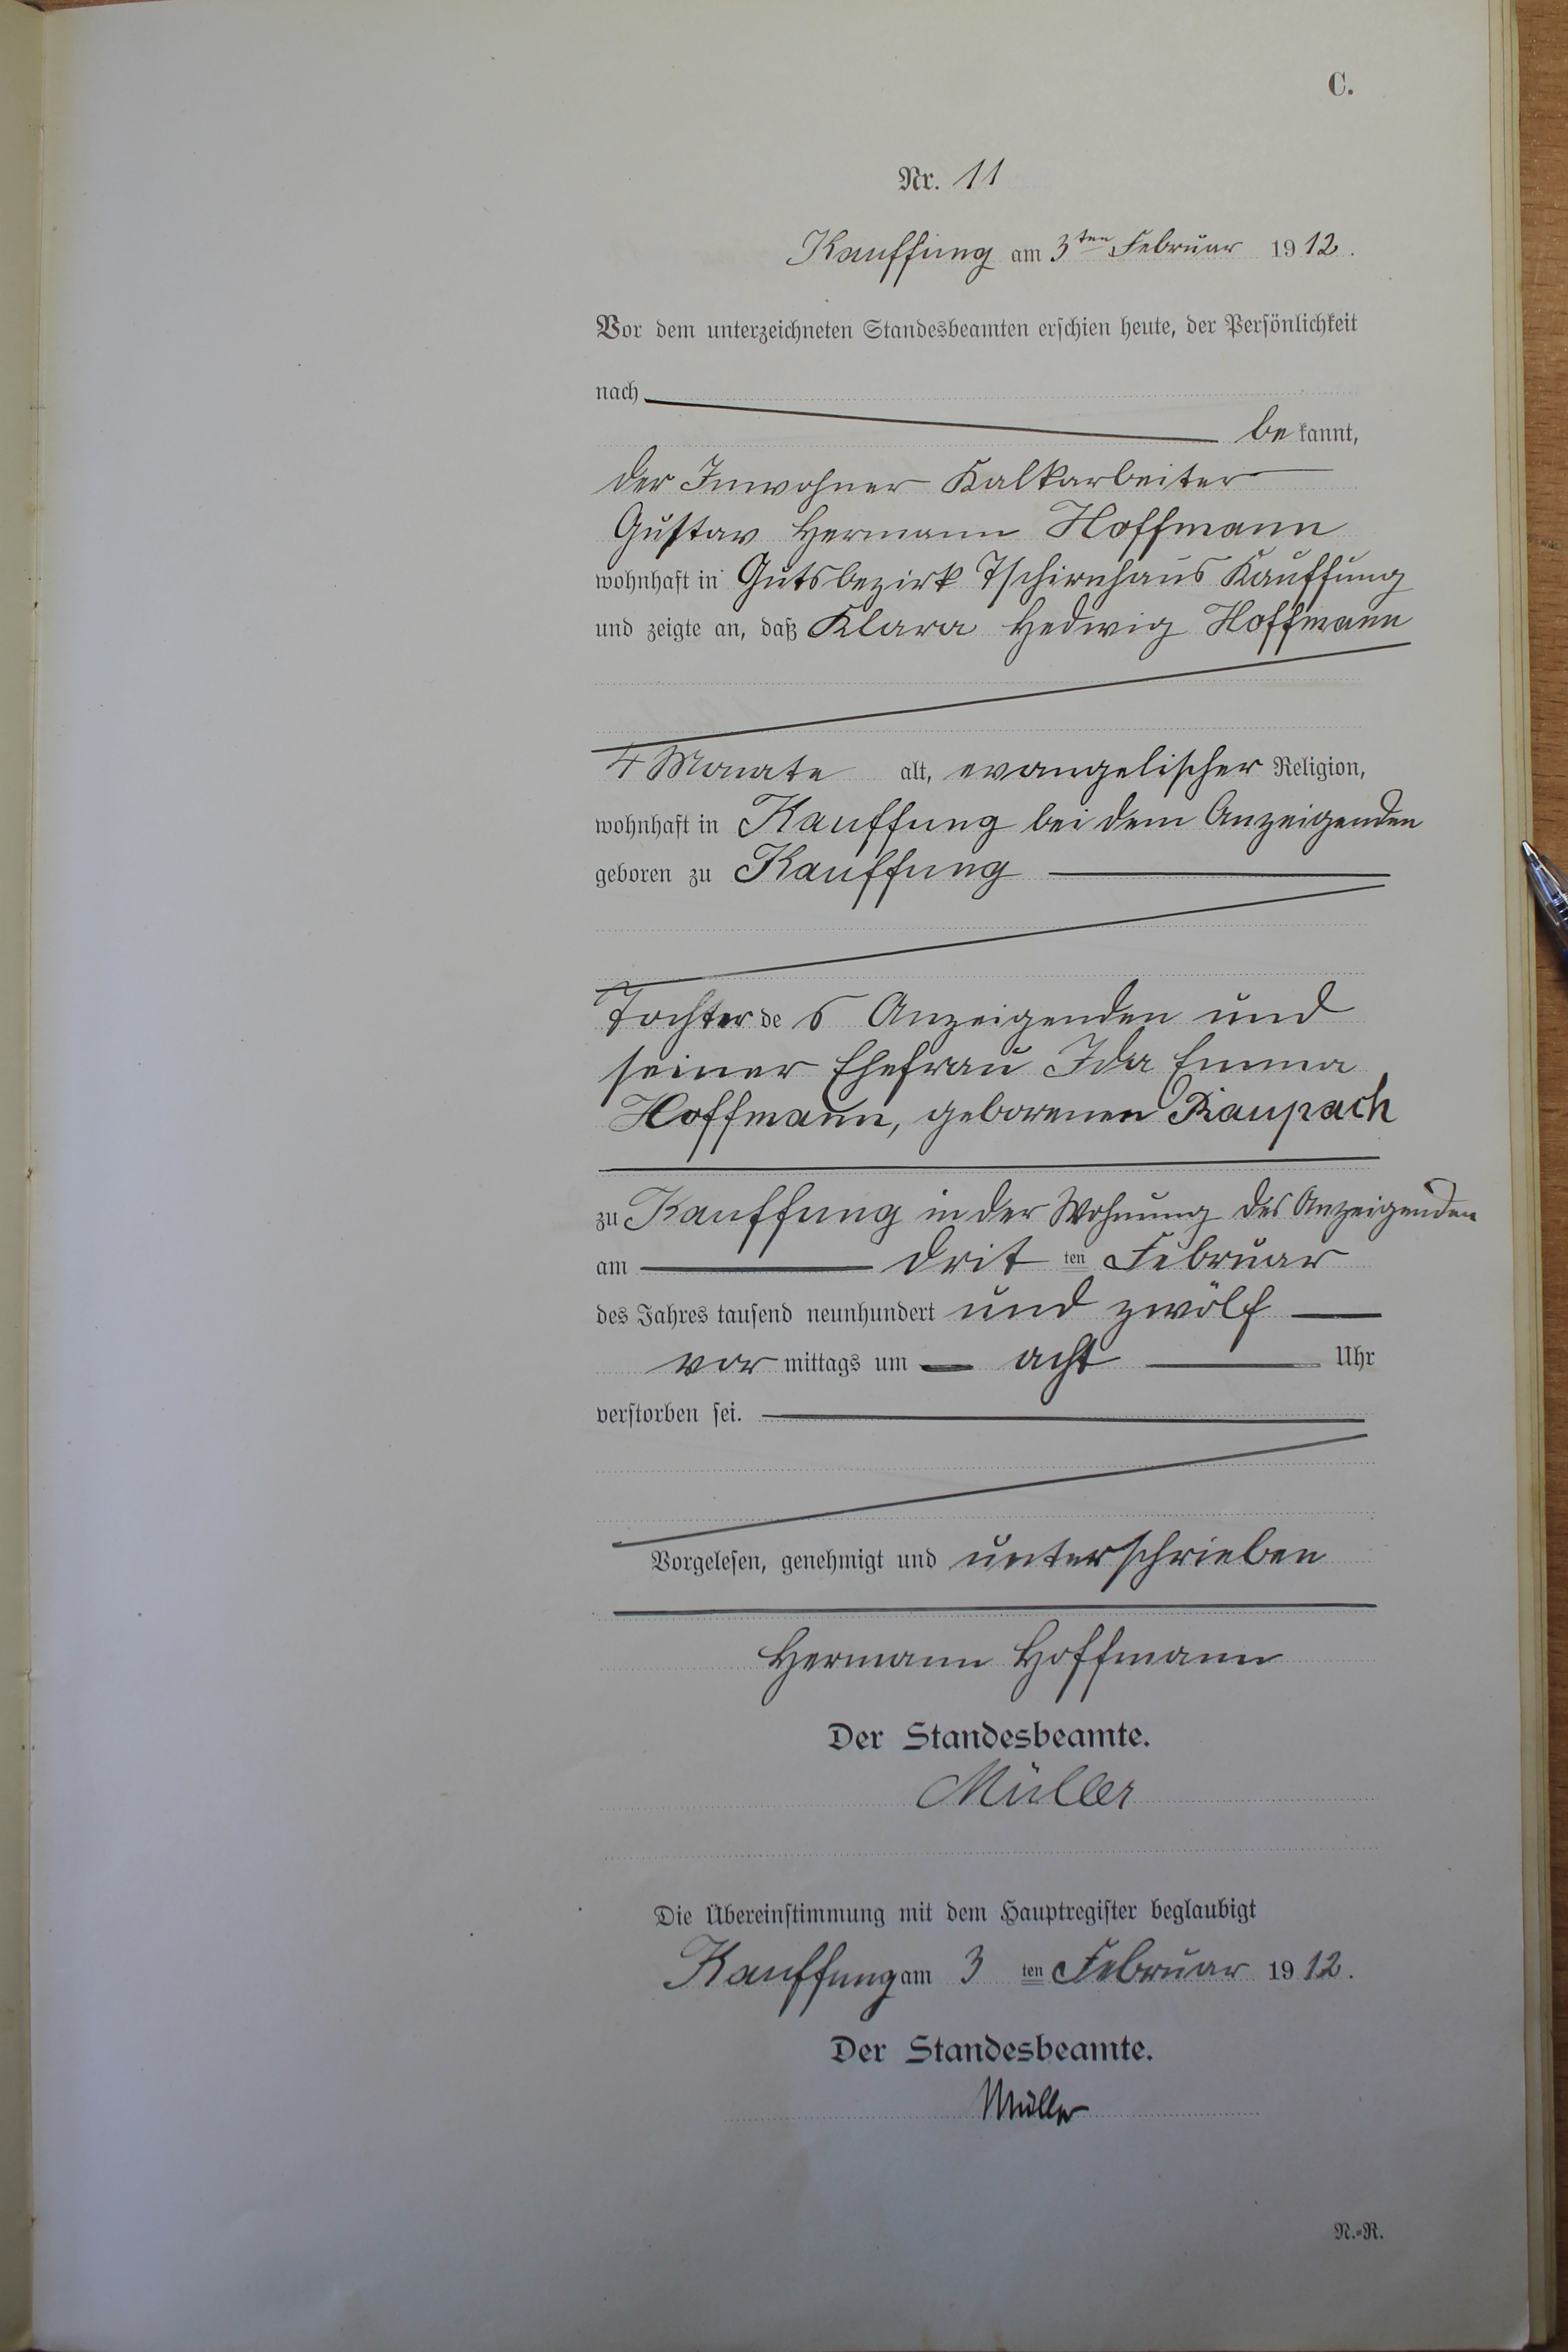 C.
Nr. 11
Kauffung am 3ten Februar 1912.
Vor dem unterzeichneten Standesbeamten erschien heute, der Persönlichkeit
nach
bekannt,
der Inwohner Kalkarbeiter
Gustav Hermann Hoffmann
wohnhaft in Gutsbezirk Tschirnhaus Kauffung
und zeigte an, daß Klara Hedwig Hoffmann
4 Monate alt, evangelischer Religion,
wohnhaft in Kauffung bei dem Anzeigenden
geboren zu Kauffung
Tochter des Anzeigenden und
seiner Ehefrau Ida Emma
Hoffmann, geborenen Raupach
zu Kauffung in der Wohnung des Anzeigenden
am dritten Februar
des Jahres tausend neunhundert und zwölf
vormittags um acht Uhr
verstorben sei.
Vorgelesen, genehmigt und unterschrieben
Hermann Hoffmann
Der Standesbeamte.
Müller
Die Übereinstimmung mit dem Hauptregister beglaubigt
Kauffung am 3ten Februar 1912.
Der Standesbeamte.
Müller
N.-R.